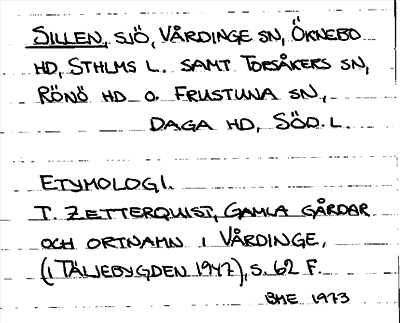 SILLEN, SJÖ, VÅRDINGE SN, ÖKNEBO
HD, STHLMS L. SAMT TORSÅKERS SN,
RÖNÖ HD O. FRUSTUNA SN,
DAGA HD, SÖD. L.
ETYMOLOGI.
T. ZETTERQUIST, GAMLA GÅRDAR
OCH ORTNAMN I VÅRDINGE,
(I TÄLJEBYGDEN 1947), S. 62 F.
BHE 1973